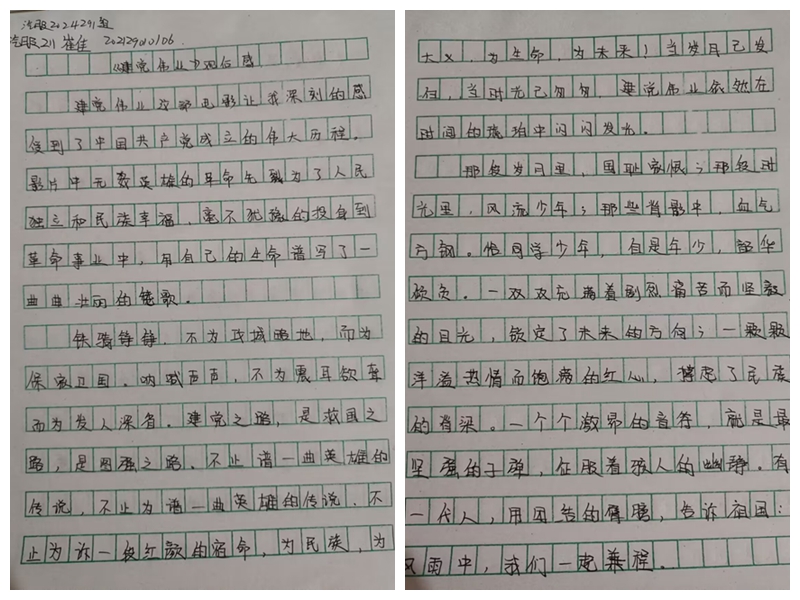 汽服2024291班
汽服211 崔佳 20212910106
《建党伟业》观后感
建党伟业这部电影让我深刻的感
受到了中国共产党成立的伟大历程。
影片中无数英雄的革命先烈为了人民
独立和民族幸福，毫不犹豫的投身到
革命事业中，用自己的生命谱写了一
曲曲壮丽的赞歌。
铁骑铮铮，不为攻城略地，而为
保家卫国。呐喊声声，不为震耳欲聋
而为发人深省。建党之路，是救国之
路，是图强之路。不止谱一曲英雄的
传说，不止为谱一曲英雄的传说，不
止为诉一段红颜的宿命，为民族，为
大义，为生命，为未来！当岁月已发
白，当时光已匆匆，建党伟业依然在
时间的琥珀中闪闪发光。
那段岁月里，国耻家恨；那段时
光里，风流少年；那些背影中，血气
方钢。恰同学少年，自是年少，韶华
倾负。一双双充满着剧烈痛苦而坚毅
的目光，锁定了未来的方向；一颗颗
洋溢热情而饱满的红心，撑起了民族
的脊梁。一个个激昂的音符，就是最
坚强的子弹，征服着敌人的幽静。有
一代人，用团结的臂膀，告诉祖国：
风雨中，我们一起兼程。